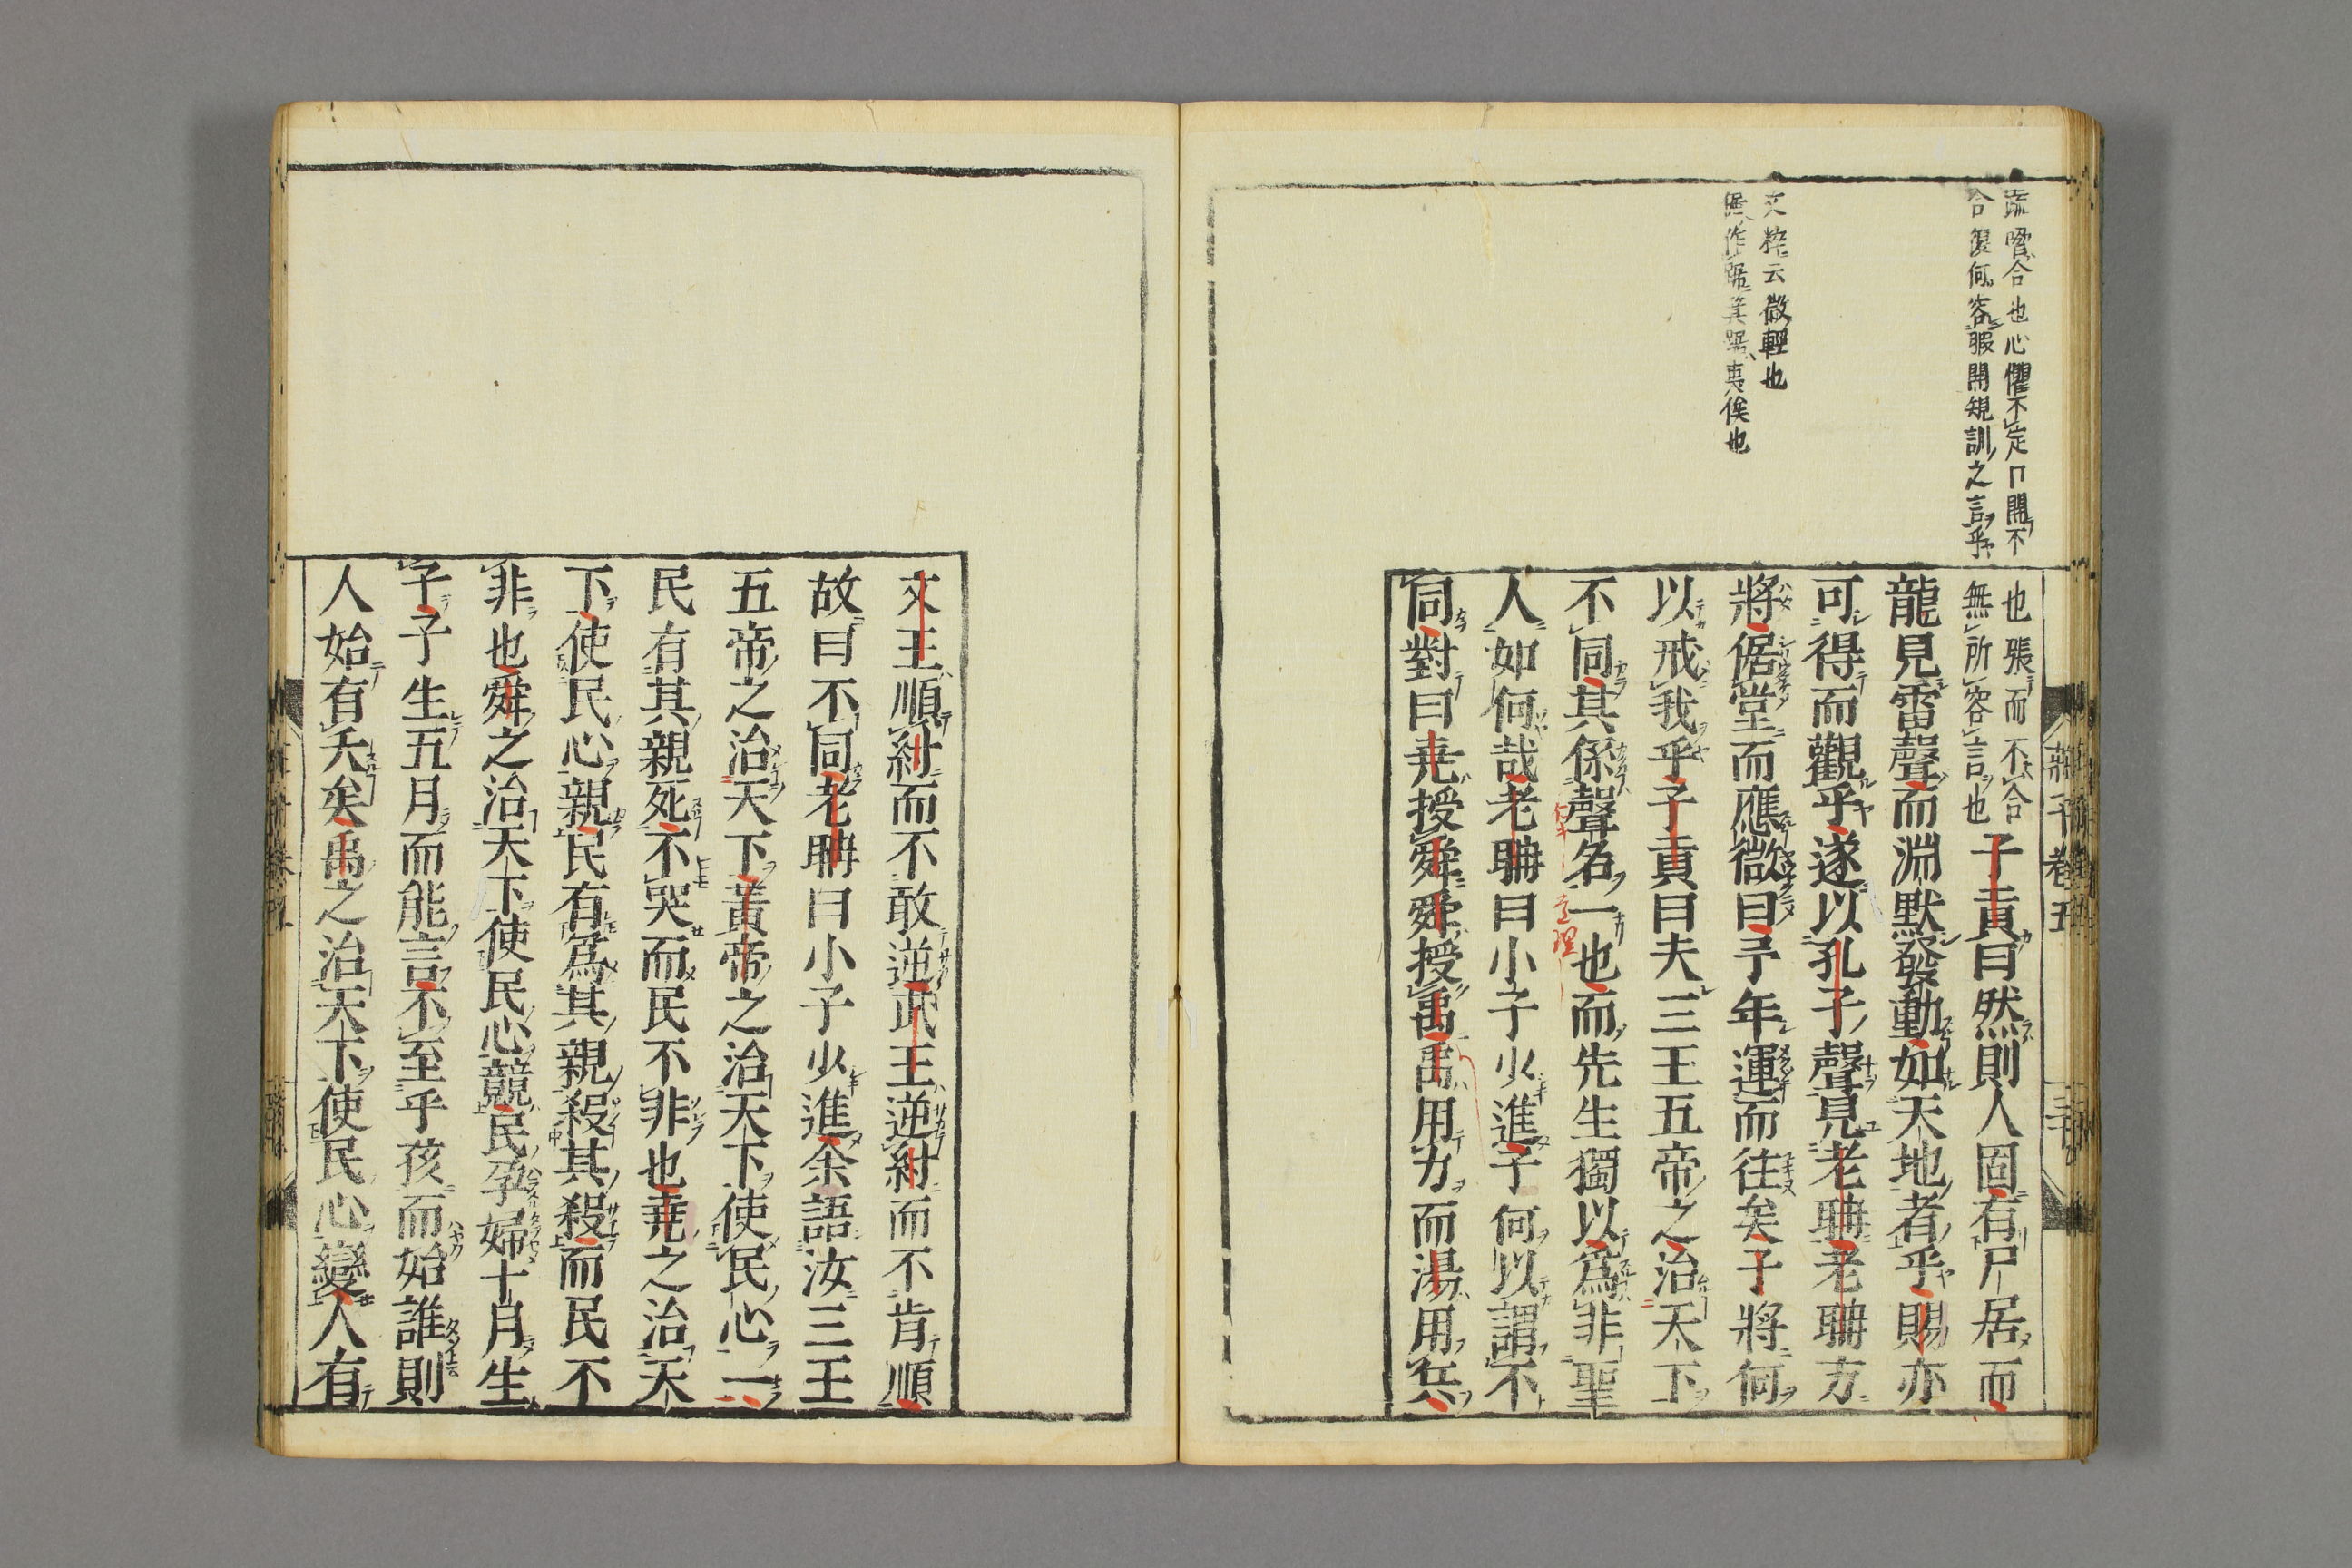 疏嗋合也心懼不定口開不
合復何容暇聞規訓之言乎
文粹云微輕也
倨作踞箕踞夷俟也
也張而不合
無所容言也
子貢曰然則人固有尸居而
龍見雷聲而淵默發動如天地者乎賜亦
可得而觀乎遂以孔子聲見老聃老聃方
將倨堂而應微曰予年運而往矣子將何
以戒我乎子貢曰夫三王五帝之治天下
不同其係聲名一也而先生獨以爲非聖
人如何哉老聃曰小子少進子何以謂不
同對曰堯授舜舜授禹禹用力而湯用兵
莊子卷五
文王順紂而不敢逆武王逆紂而不肯順
故曰不同老聃曰小子少進余語汝三王
五帝之治天下黃帝之治天下使民心一
民有其親死不哭而民不非也堯之治天
下使民心親民有爲其親殺其殺而民不
非也舜之治天下使民心競民孕婦十月生
子子生五月而能言不至乎孩而始誰則
人始有夭矣禹之治天下使民心變人有